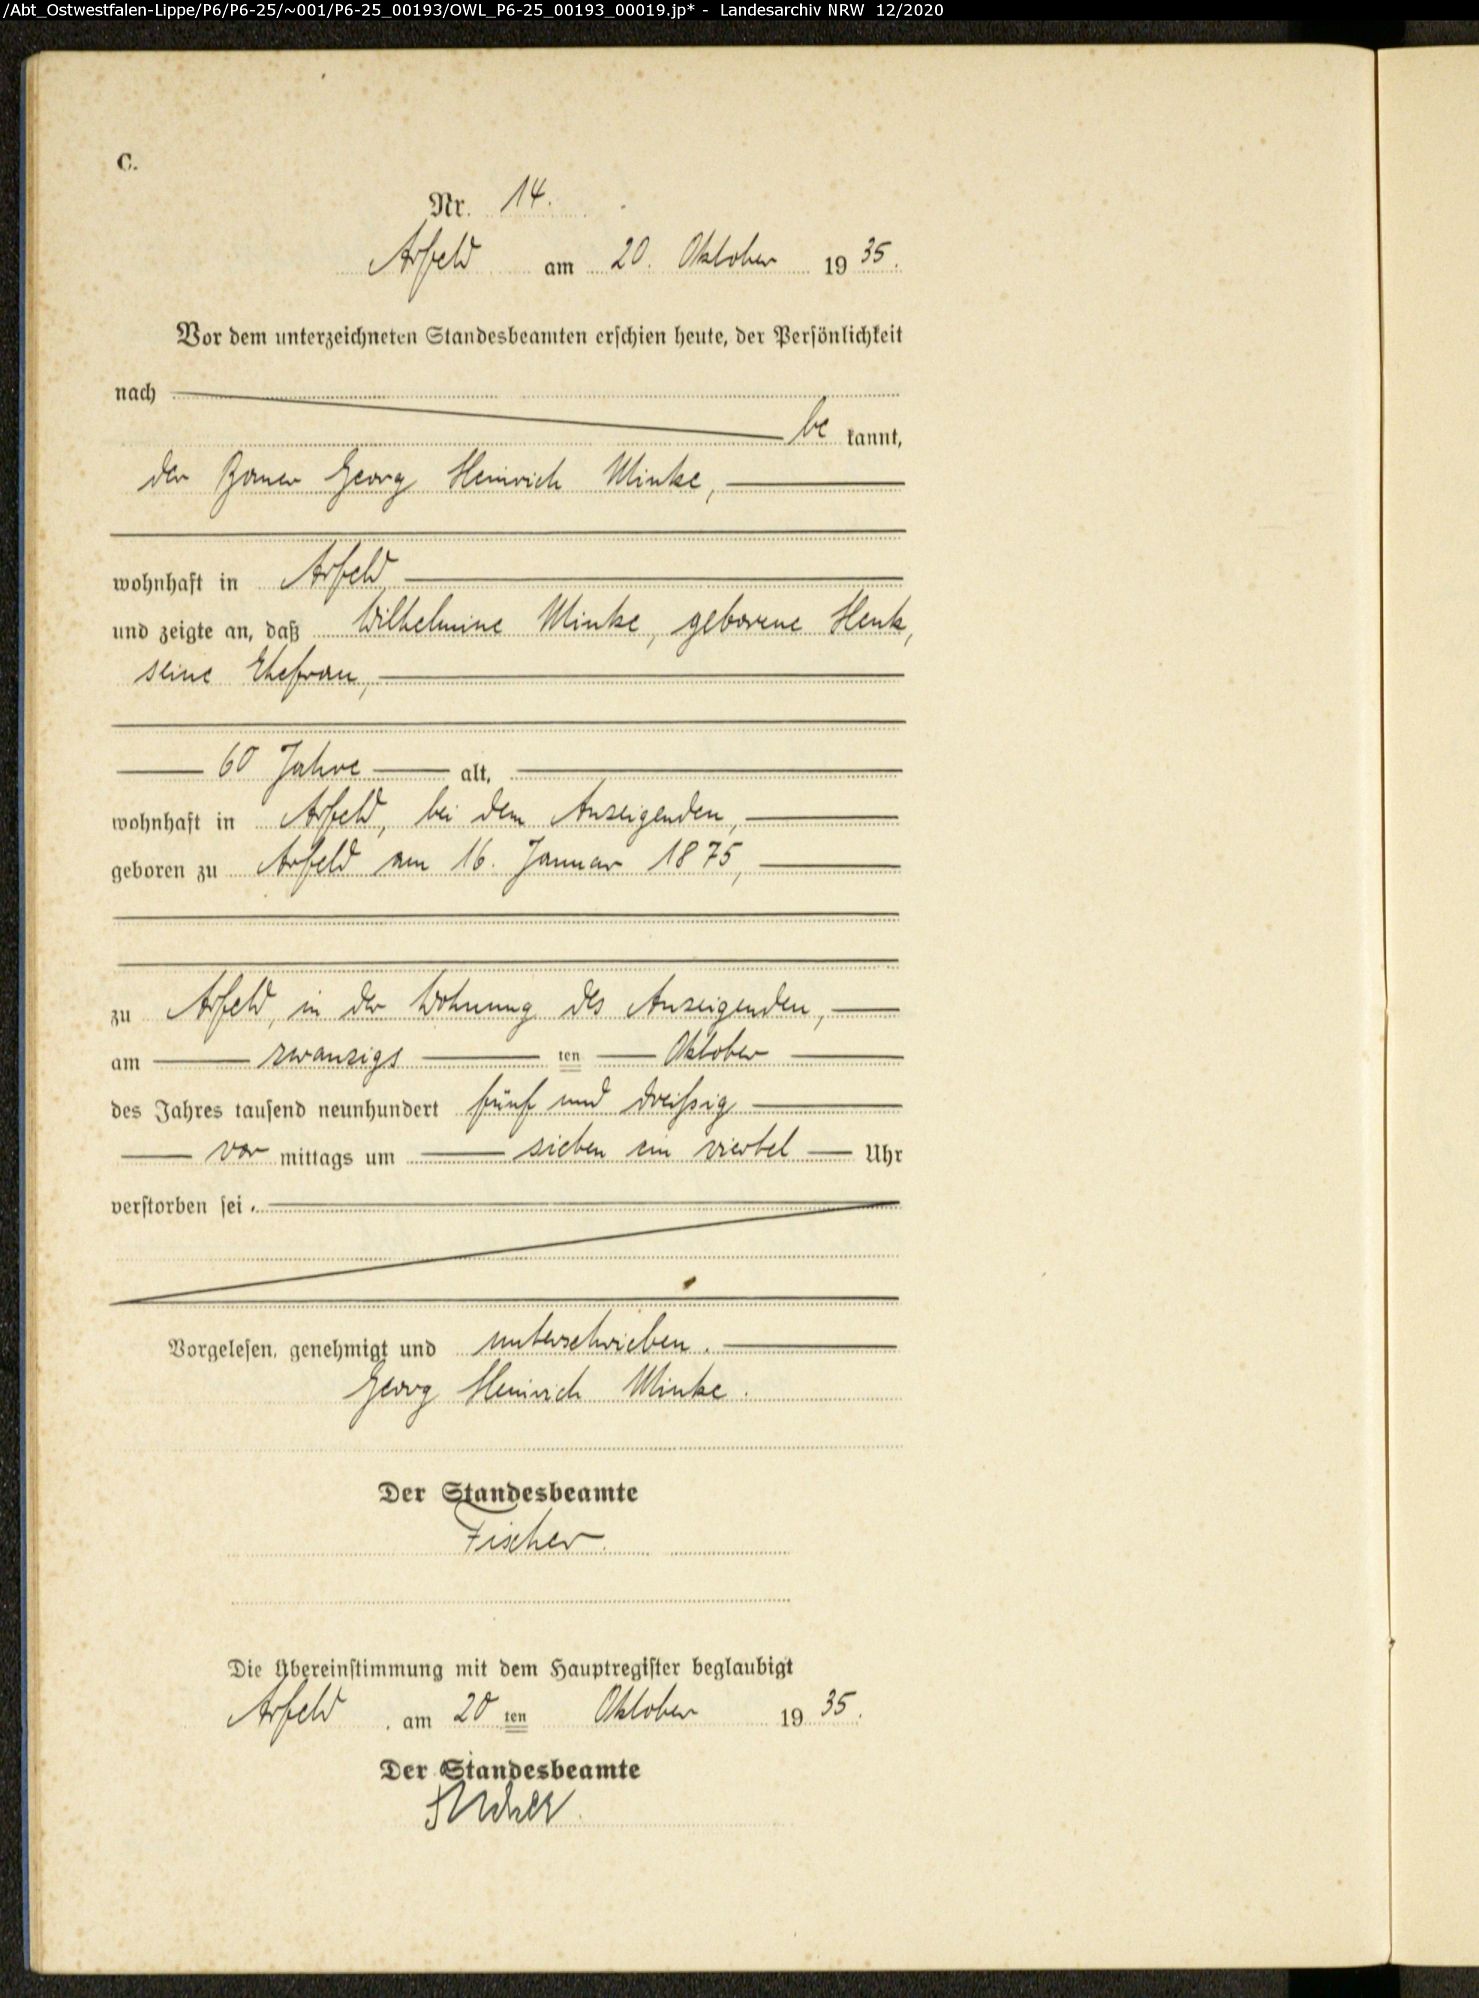 /Abt_Ostwestfalen-Lippe/P6/P6-25/~001/P6-25_00193/OWL_P6-25_00193_00019.jp* - Landesarchiv NRW 12/2020
C.
Nr. 14.
Arfeld am 20. Oktober 1935.
Vor dem unterzeichneten Standesbeamten erschien heute, der Persönlichkeit
nach
be kannt,
der Bauer Georg Heinrich Winke,
wohnhaft in Arfeld
und zeigte an, daß Wilhelmine Winke, geborene Henk,
seine Ehefrau,
60 Jahre alt,
wohnhaft in Arfeld, bei dem Anzeigenden,
geboren zu Arfeld am 16. Januar 1875,
zu Arfeld, in der Wohnung des Anzeigenden,
am zwanzigs ten Oktober
des Jahres tausend neunhundert fünf und dreißig
vor mittags um sieben ein viertel Uhr
verstorben sei.
Vorgelesen, genehmigt und unterschrieben.
Georg Heinrich Winke.
Der Standesbeamte
Fischer.
Die Übereinstimmung mit dem Hauptregister beglaubigt
Arfeld. am 20 ten Oktober 1935.
Der Standesbeamte
Fischer